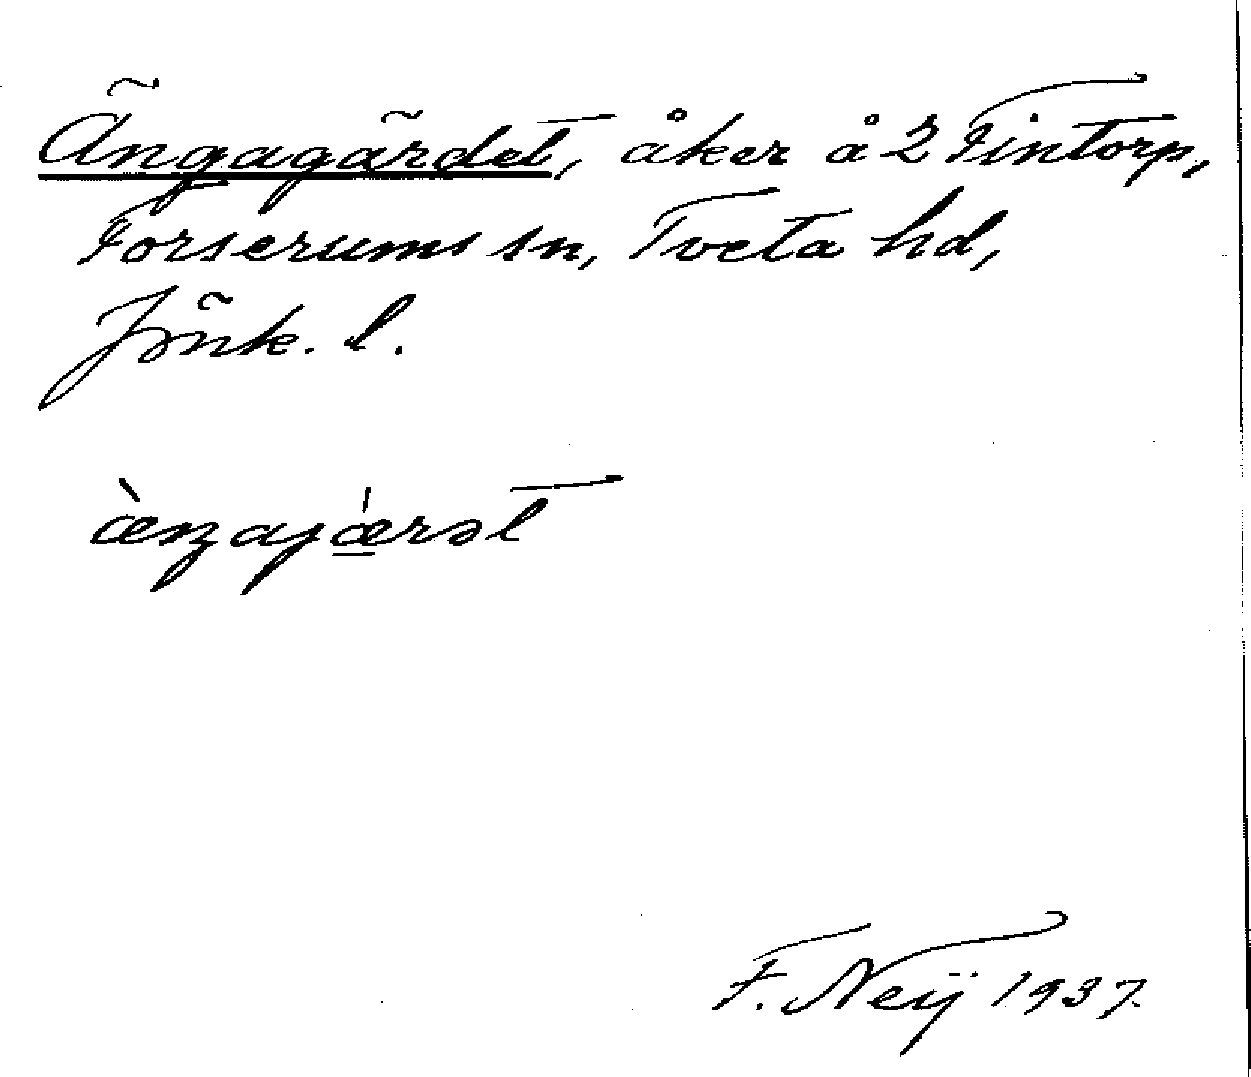 Ängagärdet, åker å 2 Fintorp,
Forserums sn, Tveta hd,
Jönk. l.
F. Neij 1937.